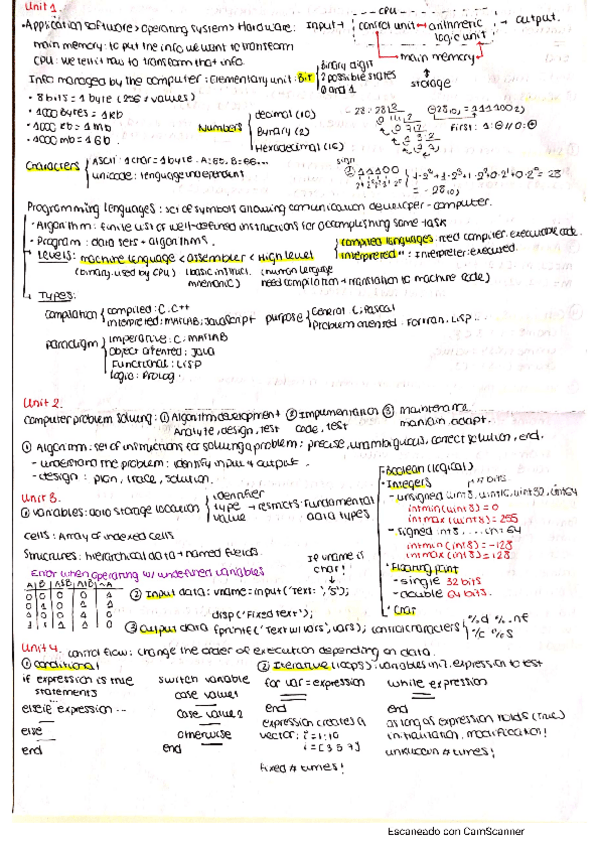 Unit 1.
• Application software > operating system > Hardware: Input → control unit ↔ arithmetic logic unit → output.
CPU
main memory: to put the info we want to transform
CPU: we tell it how to transform that info.
main memory
storage
Info managed by the computer: Elementary unit: Bit { Binary digit
2 possible states
0 and 1
• 8 bits = 1 byte (256 values)
• 1000 bytes = 1 kb
• 1000 kb = 1 mb
• 1000 mb = 1 Gb.
Numbers { decimal (10)
Binary (2)
Hexadecimal (16)
First: 1: ⊖ // 0: ⊕
Characters { ASCII: 1 char = 1 byte. A: 65, B: 66...
unicode: language independent
sign
Programming languages: set of symbols allowing comunication developer - computer.
- Algorithm: finite list of well-defined instructions for accomplishing some task
- Program: data sets + algorithms.
- Levels: machine language < assembler < High level
(binary, used by CPU) (basic instruct. mnemonic) (human language need compilation → translation to machine code)
{ compiled languages: need compiler, executable code.
interpreted " : interpreter: executed.
- Types:
compilation { compiled: C, C++
interpreted: MATLAB, JavaScript
purpose { General: C, Pascal
Problem oriented: Fortran, LISP...
paradigm { imperative: C, MATLAB
object oriented: Java
Functional: LISP
logic: Prolog.
Unit 2.
Computer problem solving: ① Algorithm development ② Implementation ③ maintenance
Analyze, design, test code, test maintain, adapt.
① Algorithm: set of instructions for solving a problem: precise, unambiguous, correct solution, end.
- understand the problem: identify input & output.
- design: plan, trace, solution.
Unit 3.
① variables: data storage location { identifier
type → restricts: Fundamental data types
value
cells: Array of indexed cells
Structures: hierarchical data + named fields.
- Boolean (logical)
• Integers
- unsigned uint8, uint16, uint32, uint64
intmin(uint8) = 0
intmax(uint8) = 255
- signed int8, ... int64
intmin(int8) = -128
intmax(int8) = 128
• Floating point
- single 32 bits
- double 64 bits.
• Char
Error when operating w/ undefined variables
If vname is char!
② Input data: vname = input('Text: ', 's');
disp('Fixed text');
③ Output data fprintf('Text w/ vars', vars); control characters { %d %.nf
%c %s
Unit 4. control flow: change the order of execution depending on data.
① conditional
if expression is true
statements
elseif expression...
else
end
switch variable
case value1
case value2
otherwise
end
② Iterative (loops): variables in ?. expression to test
for var = expression
end
expression creates a
vector: i = 1:10
i = [3 5 7]
fixed # times!
while expression
end
as long as expression holds (true)
initialization, modification!
unknown # times!
Escaneado con CamScanner